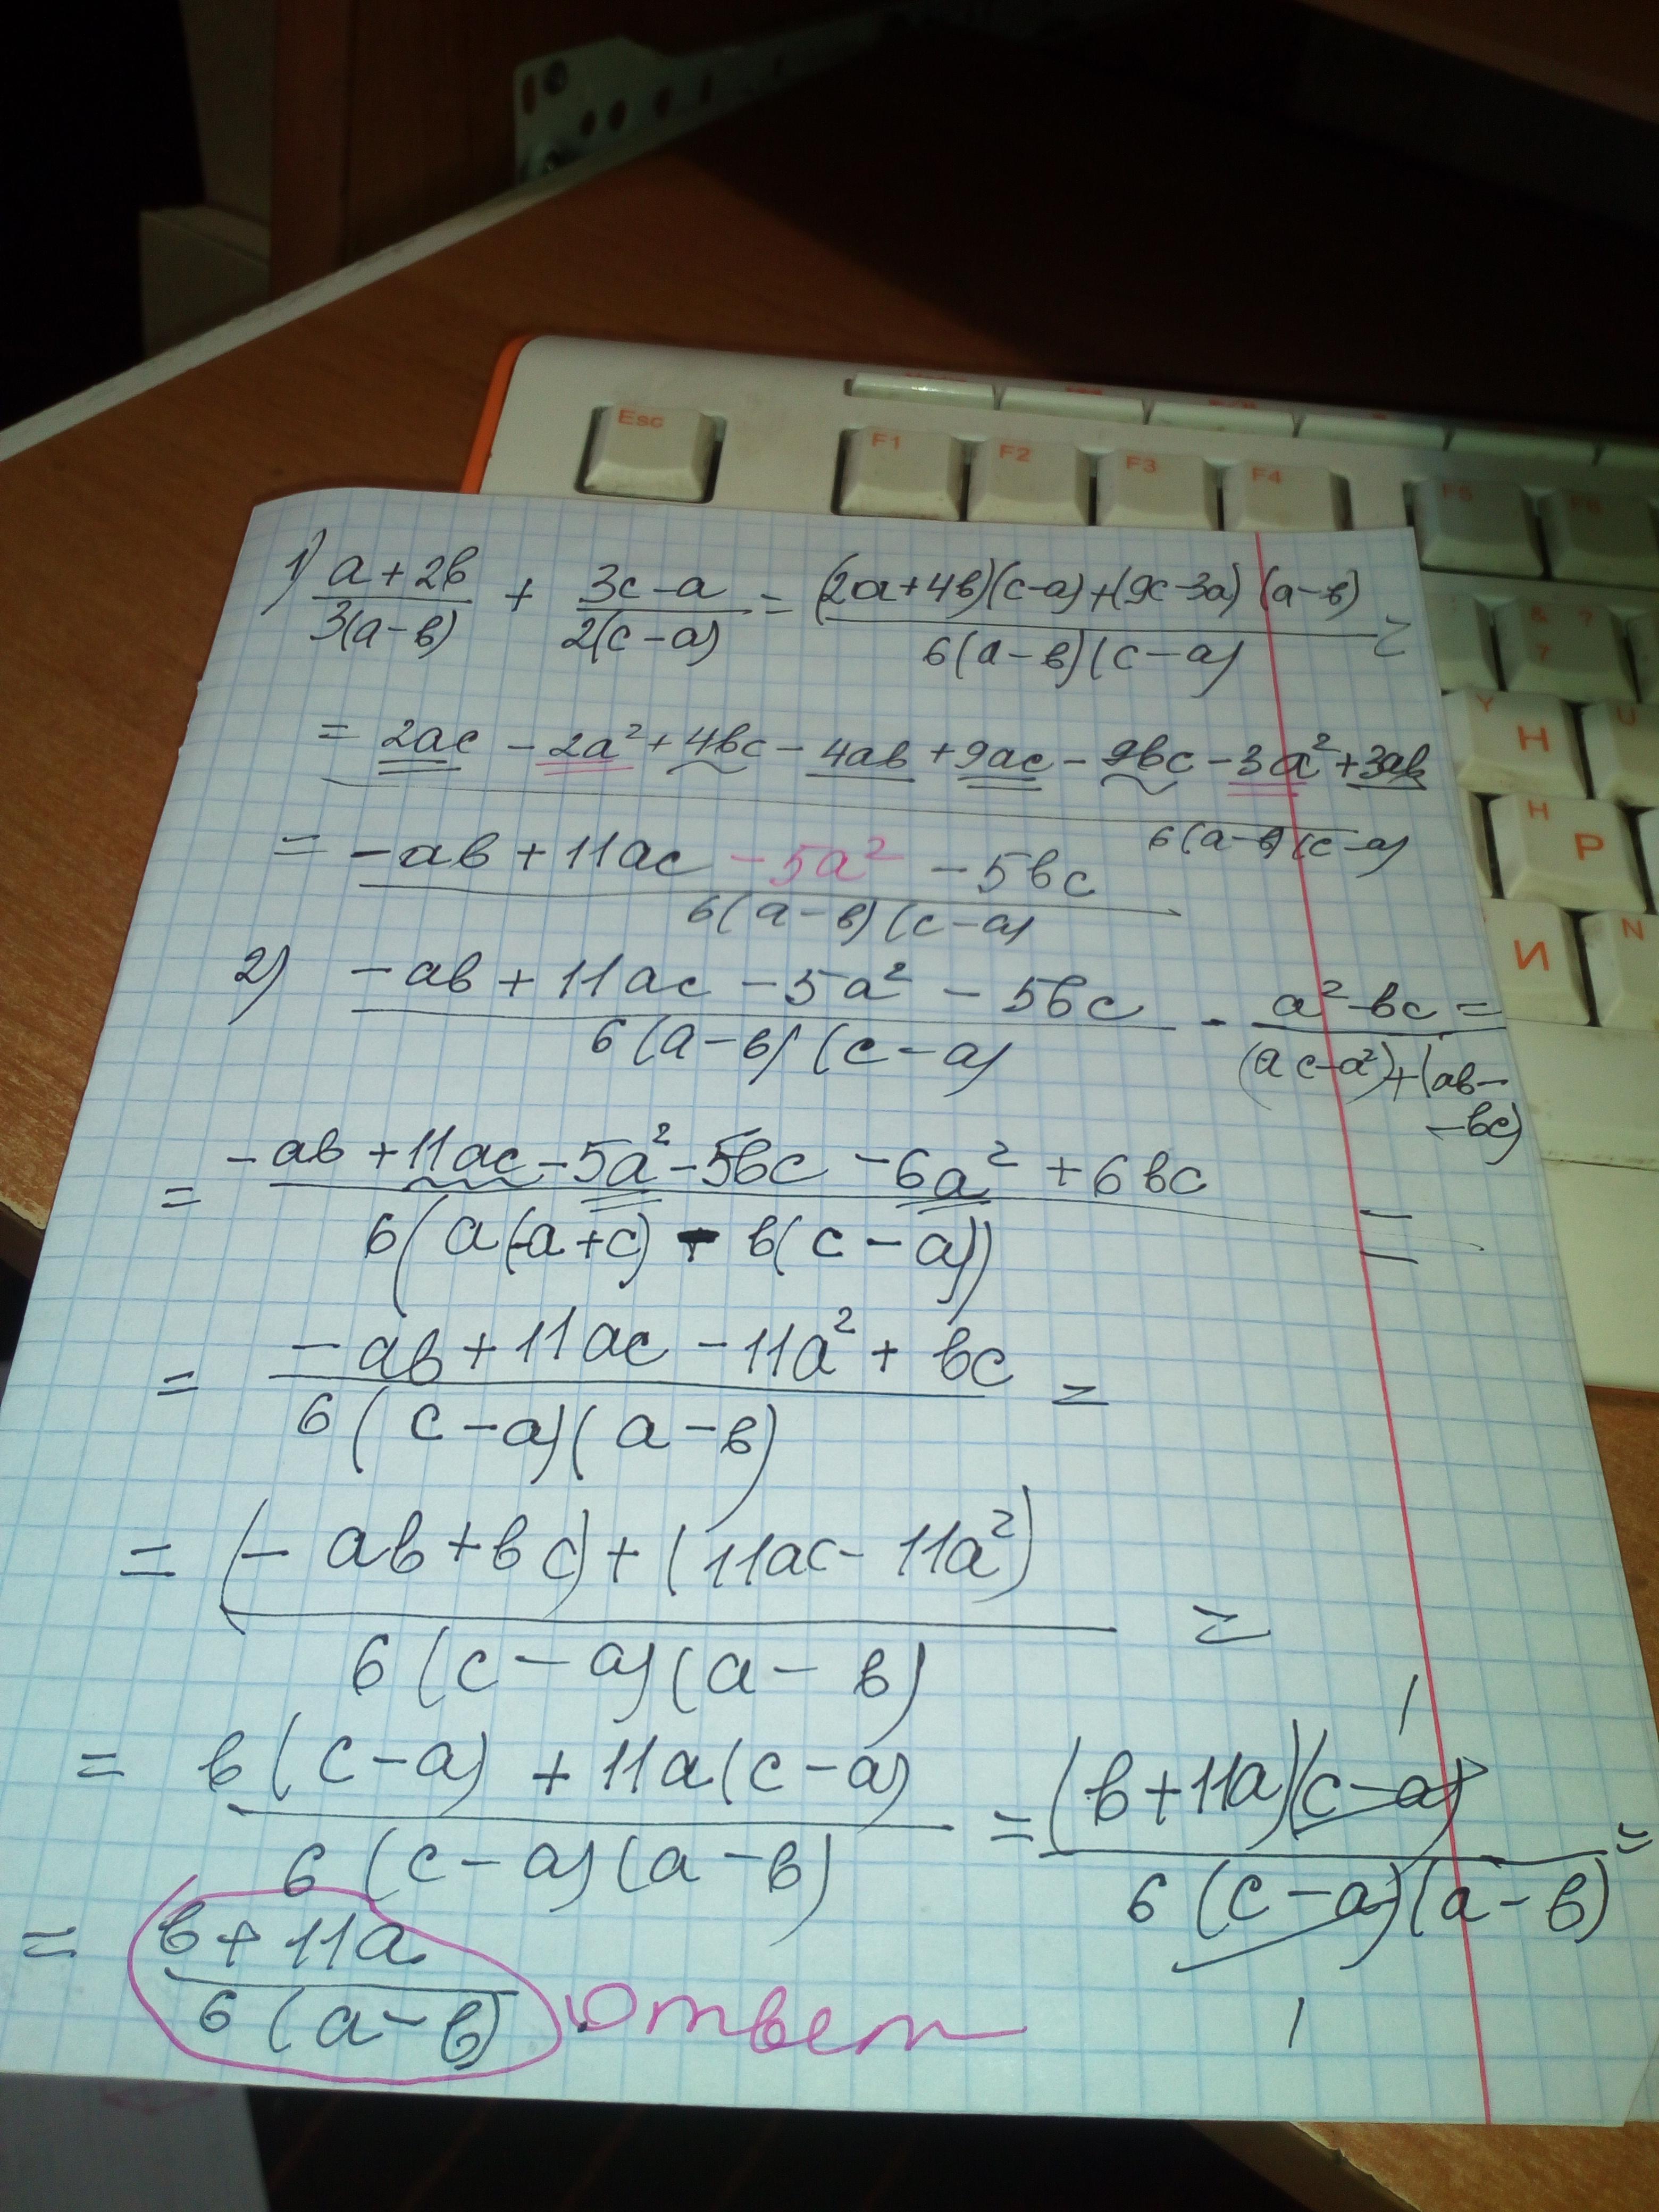 Esc
F1 F2 F3 F4 F5
& ?
7
Y Н U
H Р
И N
1) (a+2b)/(3(a-b)) + (3c-a)/(2(c-a)) = ((2a+4b)(c-a)+(9c-3a)(a-b))/(6(a-b)(c-a)) =
= (2ac - 2a² + 4bc - 4ab + 9ac - 9bc - 3a² + 3ab)/(6(a-b)(c-a))
= (-ab + 11ac - 5a² - 5bc)/(6(a-b)(c-a))
2) (-ab + 11ac - 5a² - 5bc)/(6(a-b)(c-a)) - (a²-bc)/((ac-a²)+(ab-
-bc)) =
= (-ab + 11ac - 5a² - 5bc - 6a² + 6bc)/(6(a(-a+c) - b(c-a))) =
= (-ab + 11ac - 11a² + bc)/(6(c-a)(a-b)) =
= ((-ab+bc)+(11ac-11a²))/(6(c-a)(a-b)) =
= (b(c-a) + 11a(c-a))/(6(c-a)(a-b)) = ((b+11a)(c-a) 1)/(6(c-a)(a-b) 1) =
= (b+11a)/(6(a-b)) ответ